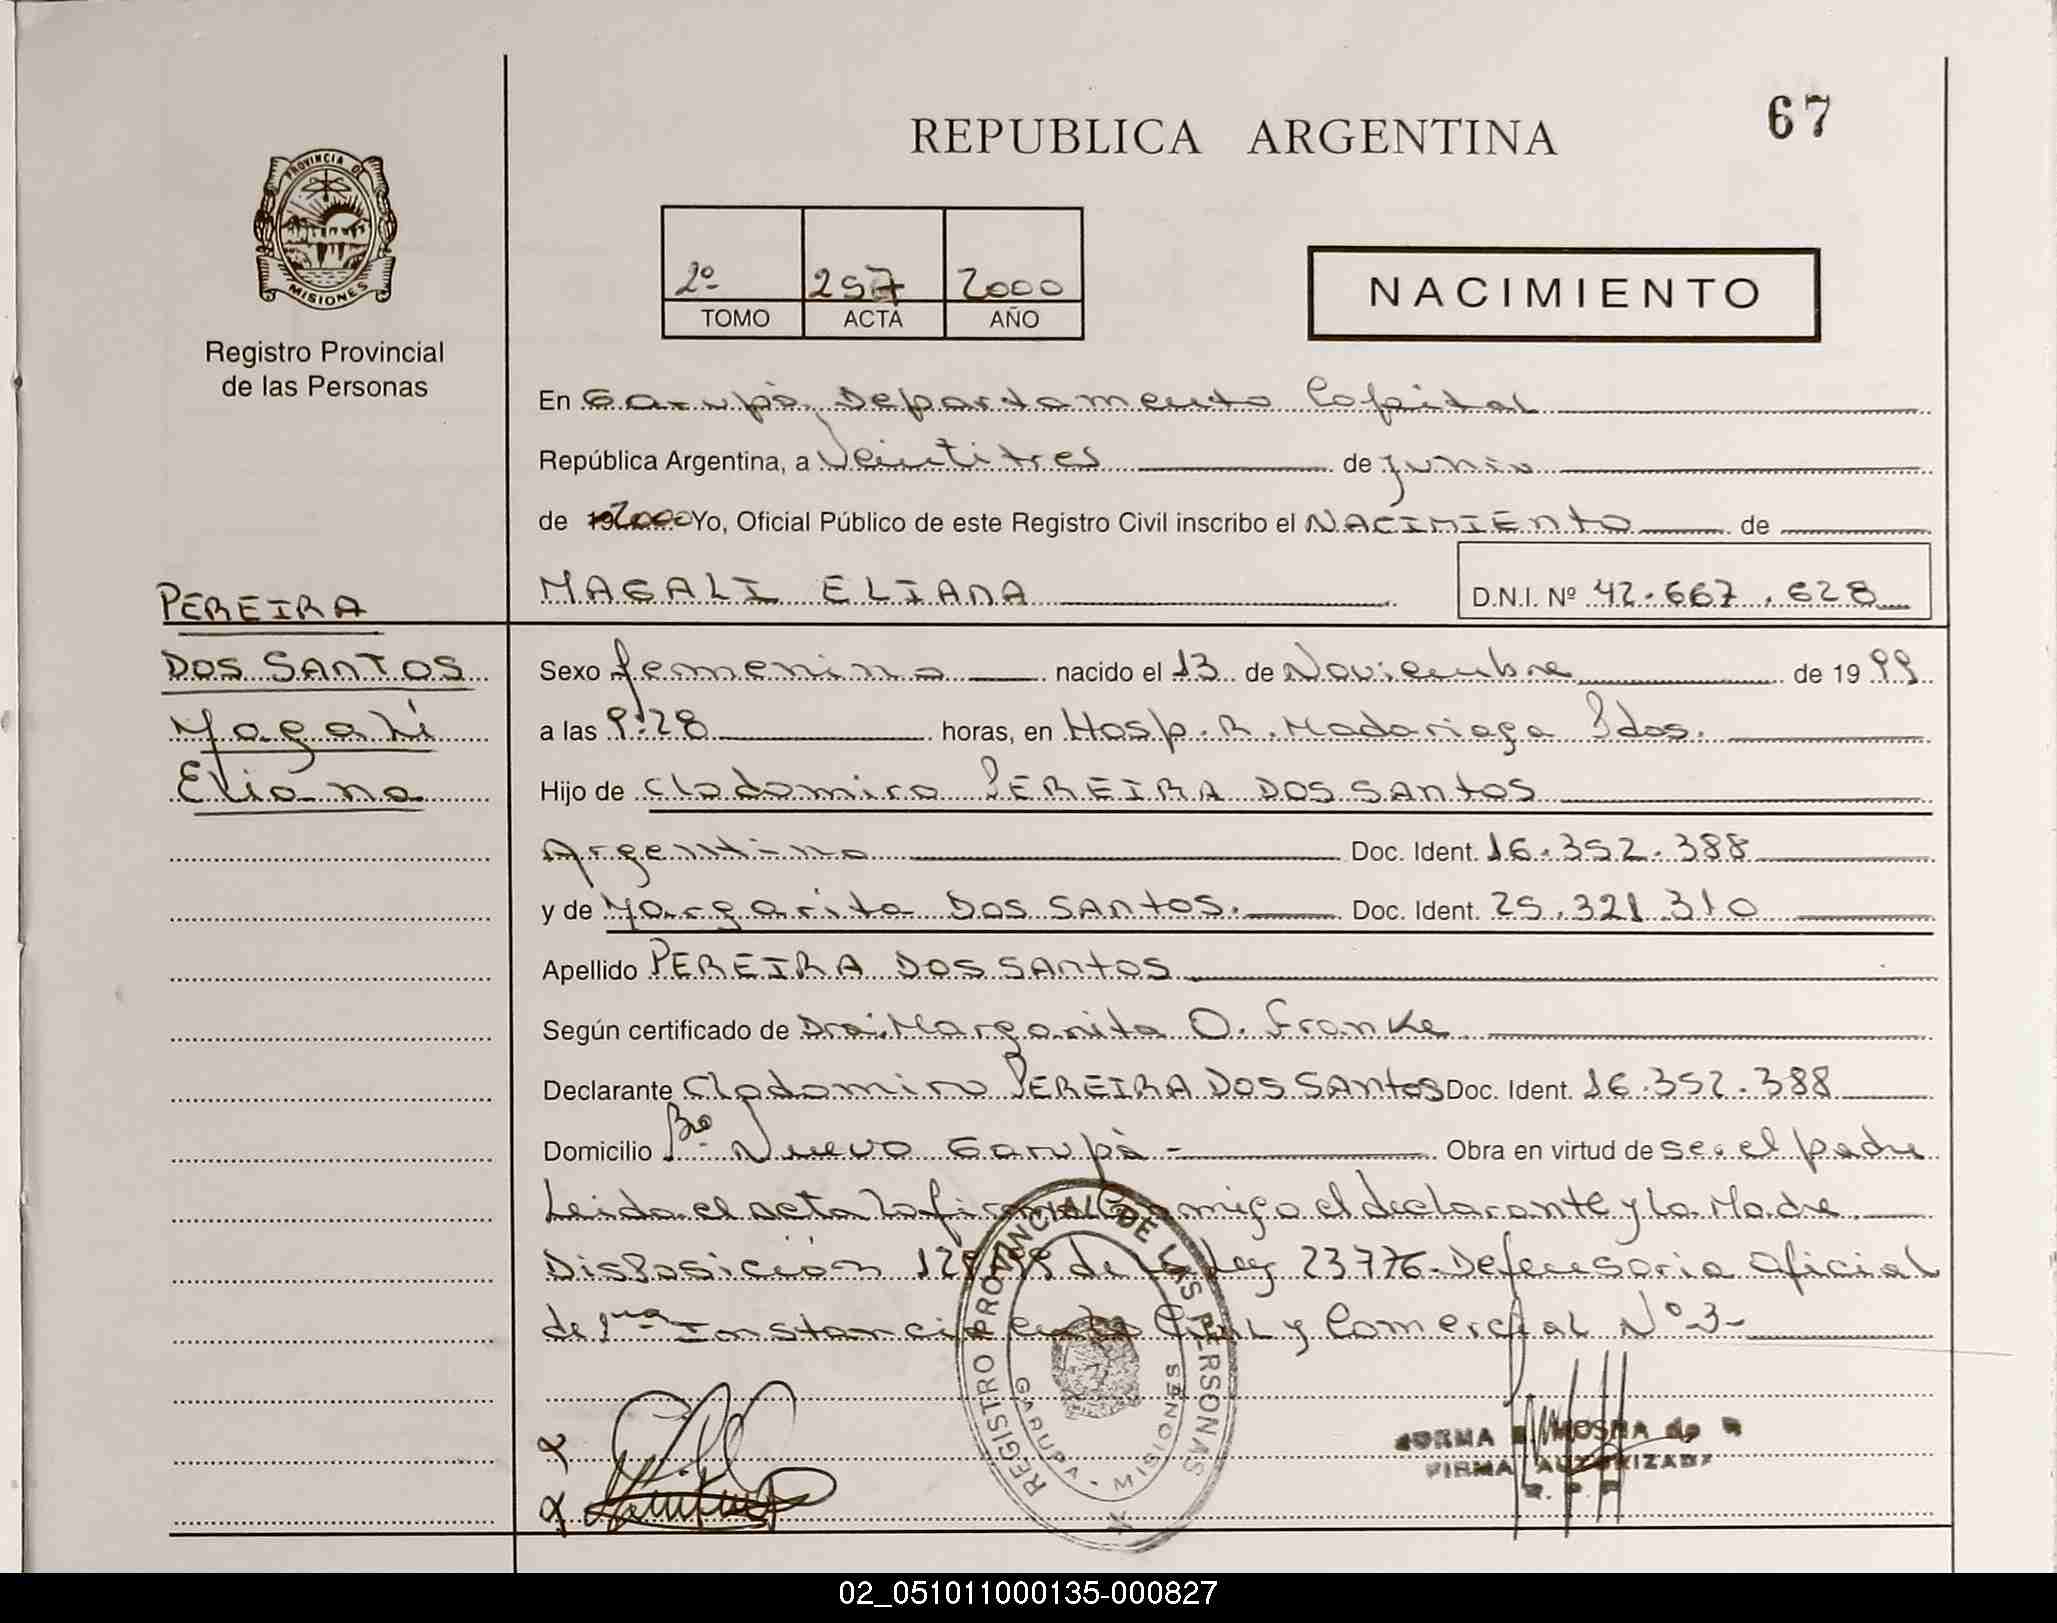 67
REPUBLICA ARGENTINA
PROVINCIA DE
MISIONES
Registro Provincial
de las Personas
2º 257 2000
TOMO ACTA AÑO
NACIMIENTO
En Garupà, Departamento Capital
República Argentina, a Veintitres de junio
de 192000 Yo, Oficial Público de este Registro Civil inscribo el NACIMIENTO de
MAGALI ELIANA D.N.I. Nº 42.667.628
PEREIRA
DOS SANTOS
Magali
Eliana
Sexo femenino nacido el 13 de Noviembre de 1999
a las 9:28 horas, en Hosp. R. Madariaga Pdos.
Hijo de Clodomiro PEREIRA DOS SANTOS
Argentino Doc. Ident. 16.352.388
y de Margarita DOS SANTOS. Doc. Ident. 25.321.310
Apellido PEREIRA DOS SANTOS
Según certificado de Dra. Margarita O. Franke
Declarante Clodomiro PEREIRA DOS SANTOS Doc. Ident. 16.352.388
Domicilio Bro. Nuevo Garupà - Obra en virtud de ser el padre
Leida el acta la firman Conmigo el declarante y la Madre.
Disposición de la Ley 23776-Defensoria Oficial
de 1ra Instancia en lo Civil y Comercial Nº 3-
REGISTRO PROVINCIAL DE LAS PERSONAS
GARUPA - MISIONES
NORMA de
FIRMA AUTORIZADA
R. P. P.
02_051011000135-000827